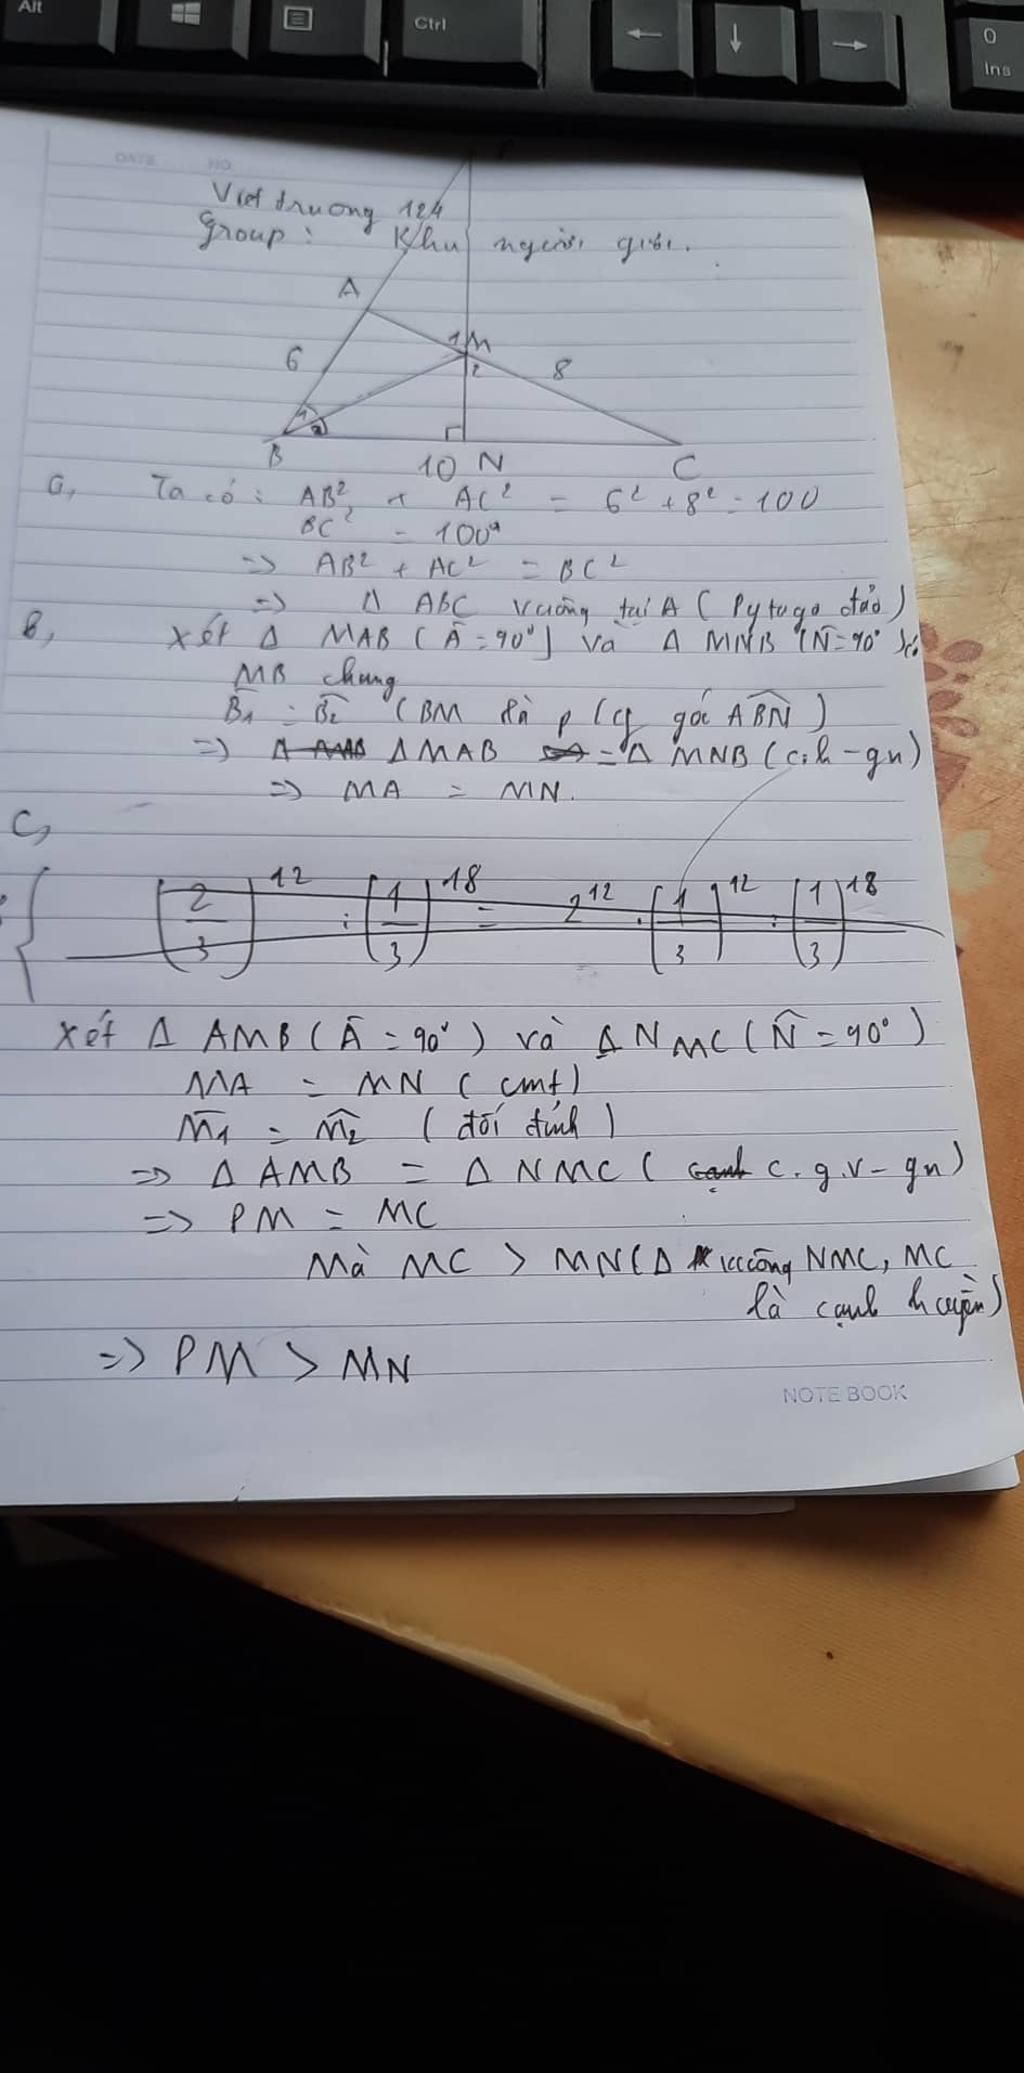 Alt
Ctrl
←
↓
→
0
Ins
DATE NO
Viet truong 124
Group: Khu người giỏi.
A
6
1 M
2
8
1
2
B
10 N
C
a, Ta có: AB² + AC² = 6² + 8² = 100
BC² = 100
=> AB² + AC² = BC²
=> Δ ABC vuông tại A ( Pytago đảo )
B, xét Δ MAB ( Â = 90° ) và Δ MNB ( N̂ = 90° ) có
MB chung
B̂1 = B̂2 ( BM là p/cg góc ABN )
=> Δ MAB = Δ MNB ( c.h - gn )
=> MA = MN.
C,
(2/3)^12 : (1/3)^18 = 2^12 . (1/3)^12 : (1/3)^18
xét Δ AMB ( Â = 90° ) và Δ NMC ( N̂ = 90° )
MA = MN ( cmt )
M̂1 = M̂2 ( đối đỉnh )
=> Δ AMB = Δ NMC ( c.g.v - gn )
=> PM = MC
Mà MC > MN ( Δ vuông NMC, MC
là cạnh huyền )
=> PM > MN
NOTE BOOK